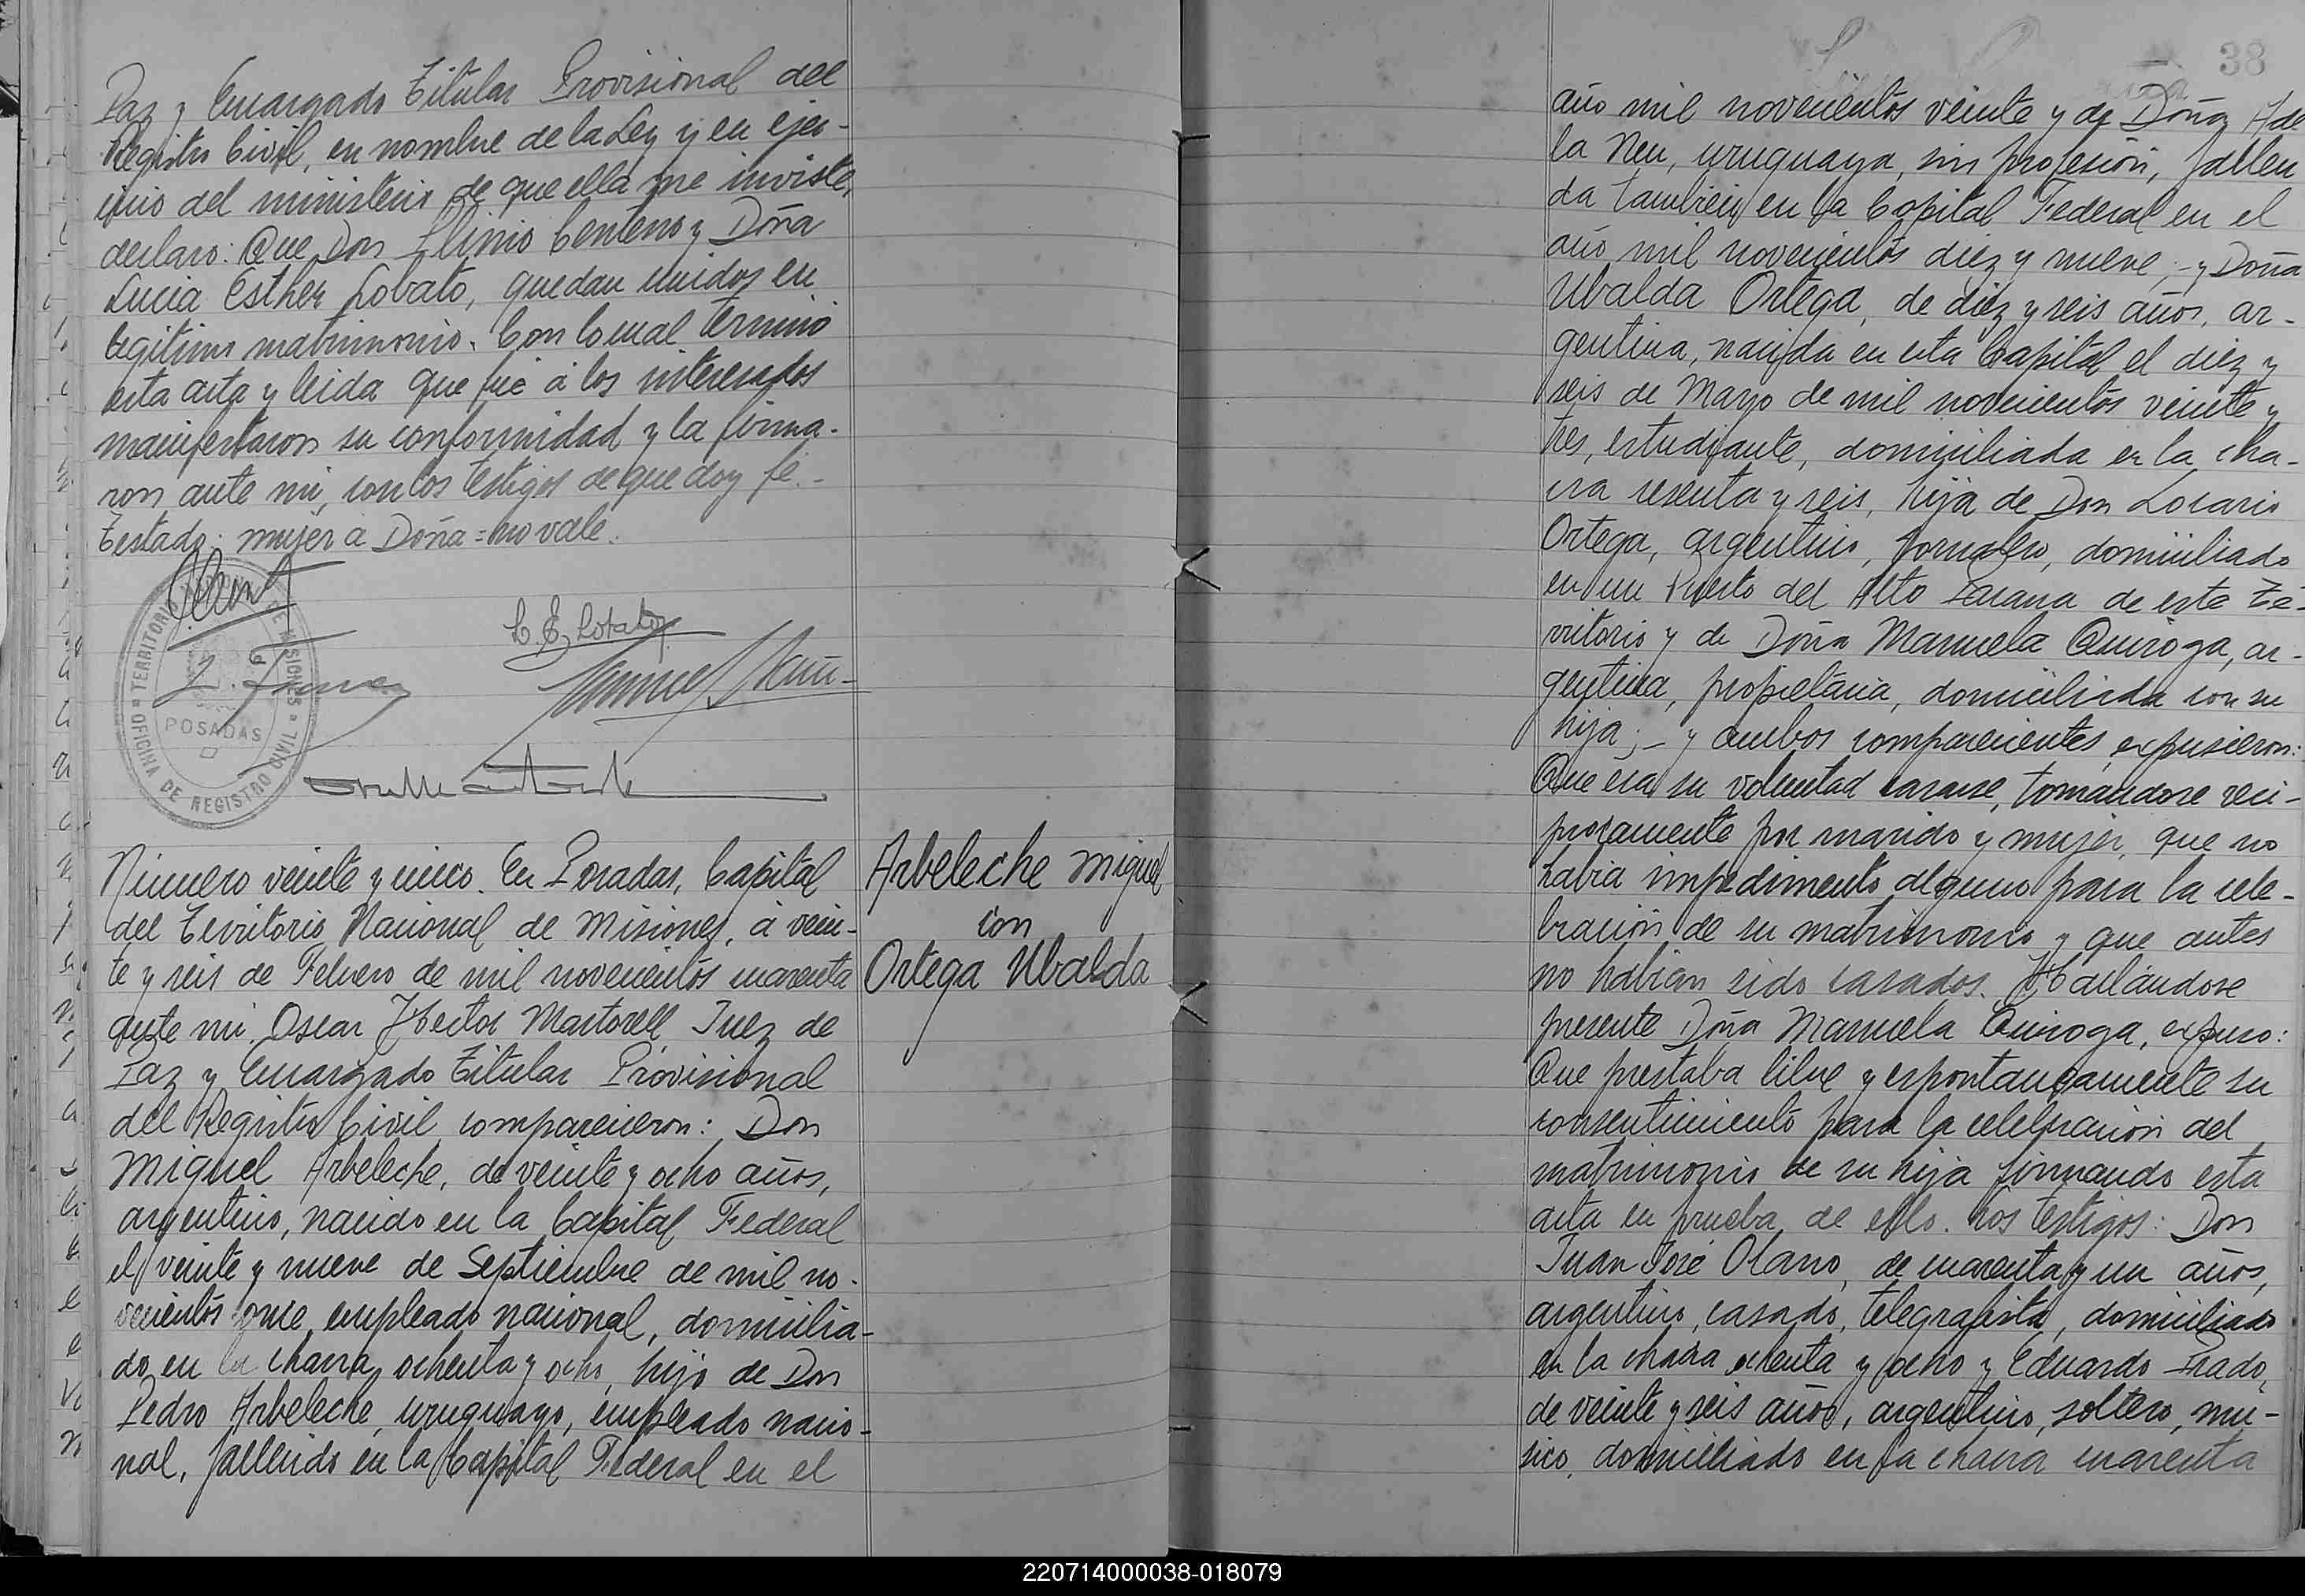 Paz y Encargado Titular Provisional del
Registro Civil, en nombre de la Ley y en ejer-
cicio del ministerio de que ella me inviste,
declaro: Que Don Plinio Centeno y Doña
Lucia Esther Lobato, quedan unidos en
legitimo matrimonio. Con lo cual terminó
esta acta y leida que fué á los interesados
manifestaron su conformidad y la firma-
ron ante mi, con los testigos de que doy fé.-
Testado: mujer a Doña = no vale.
L. E. Lobato
TERRITORIO DE MISIONES
POSADAS
OFICINA DE REGISTRO CIVIL
Número veinte y cinco. En Posadas, Capital
del Territorio Nacional de Misiones, á vein-
te y seis de Febrero de mil novecientos cuarenta
ante mi Oscar Hector Martorell Juez de
Paz y Encargado Titular Provisional
del Registro Civil comparecieron: Don
Miguel Arbeleche, de veinte y ocho años,
argentino, nacido en la Capital Federal
el veinte y nueve de Septiembre de mil no-
vecientos once, empleado nacional, domicilia-
do en la chacra ochenta y ocho, hijo de Don
Pedro Arbeleche, uruguayo, empleado nacio-
nal, fallecido en la Capital Federal en el
Arbeleche Miguel
con
Ortega Ubalda
38
año mil novecientos veinte y de Doña Ade
la Neu, uruguaya, sin profesión, falleci
da también en la Capital Federal en el
año mil novecientos diez y nueve;- y Doña
Ubalda Ortega, de diez y seis años, ar-
gentina, nacida en esta Capital el diez y
seis de Mayo de mil novecientos veinte y
tres, estudiante, domiciliada en la cha-
cra sesenta y seis, hija de Don Locario
Ortega, argentino, jornalero, domiciliado
en un Puerto del Alto Parana de este Te-
rritorio y de Doña Manuela Quiroga, ar-
gentina, propietaria, domiciliada con su
hija;- y ambos comparecientes expusieron:
Que era su voluntad casarse, tomandose reci-
procamente por marido y mujer, que no
habia impedimento alguno para la cele-
bración de su matrimonio y que antes
no habian sido casados. Hallándose
presente Doña Manuela Quiroga, expuso:
Que prestaba libre y espontaneamente su
consentimiento para la celebración del
matrimonio de su hija firmando esta
acta en prueba de ello. Los testigos: Don
Juan José Olano, de cuarenta y un años,
argentino, casado, telegrafista, domiciliado
en la chacra ochenta y ocho y Eduardo Prado,
de veinte y seis años, argentino, soltero, mu-
sico, domiciliado en la chacra cuarenta
220714000038-018079